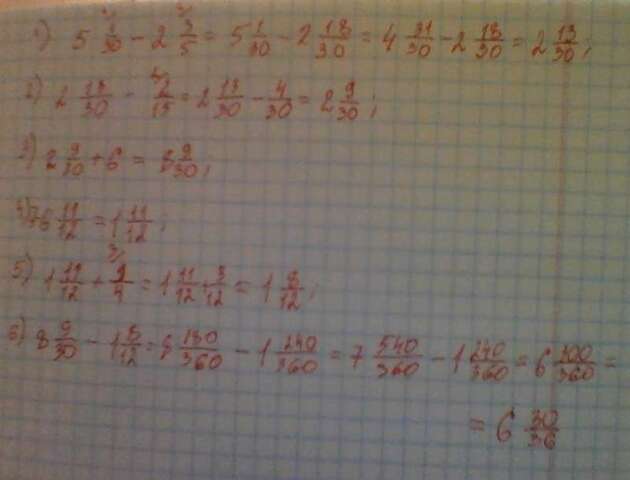 1) 5 1/30 - 2 3/5 = 5 1/30 - 2 18/30 = 4 31/30 - 2 18/30 = 2 13/30;
2) 2 13/30 - 2/15 = 2 13/30 - 4/30 = 2 9/30;
3) 2 9/30 + 6 = 8 9/30;
6 11/12 = 1 11/12;
5) 1 11/12 + = 1 11/12 3/12 = 1 8/12;
6) 8 9/30 - 1 8/12 = 8 180/360 - 1 240/360 = 7 540/360 - 1 240/360 = 6 300/360 =
= 6 30/36